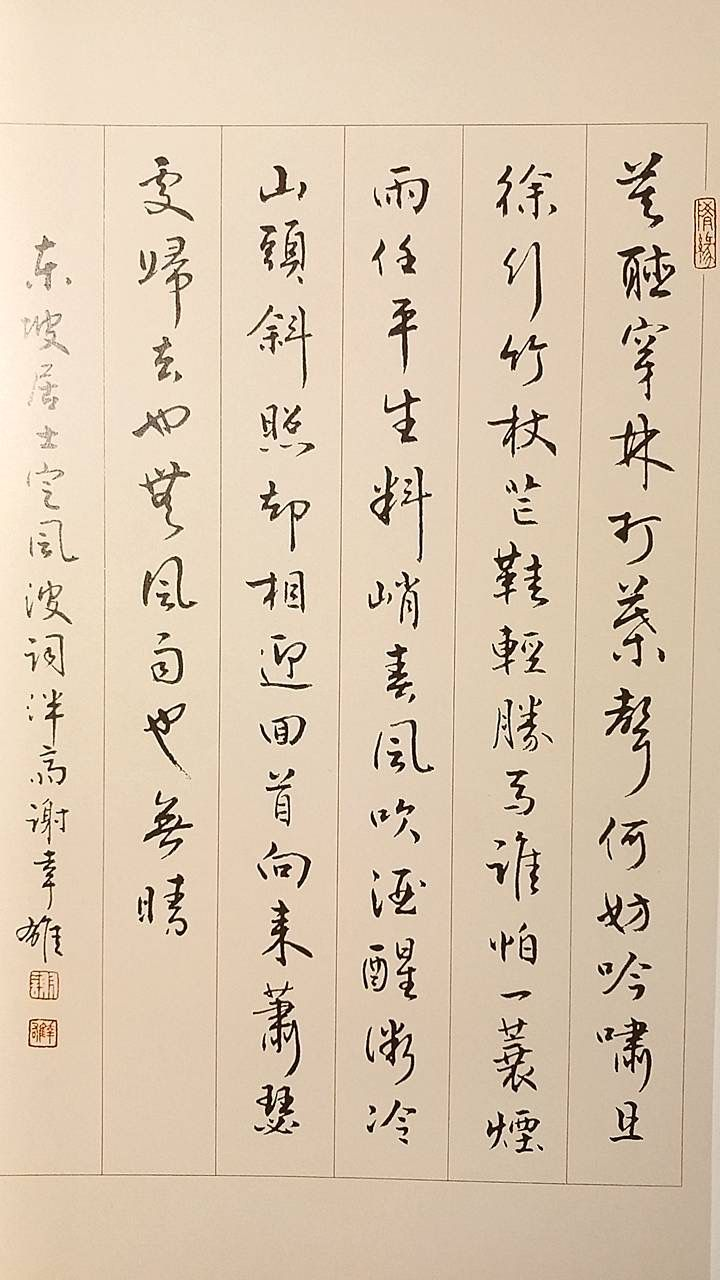 隨緣
莫聽穿林打葉聲何妨吟嘯且
徐行竹杖芒鞋輕勝馬誰怕一蓑煙
雨任平生料峭春風吹酒醒微冷
山頭斜照却相迎回首向來蕭瑟
處歸去也無風雨也無晴
東坡居士定風波詞謝幸雄